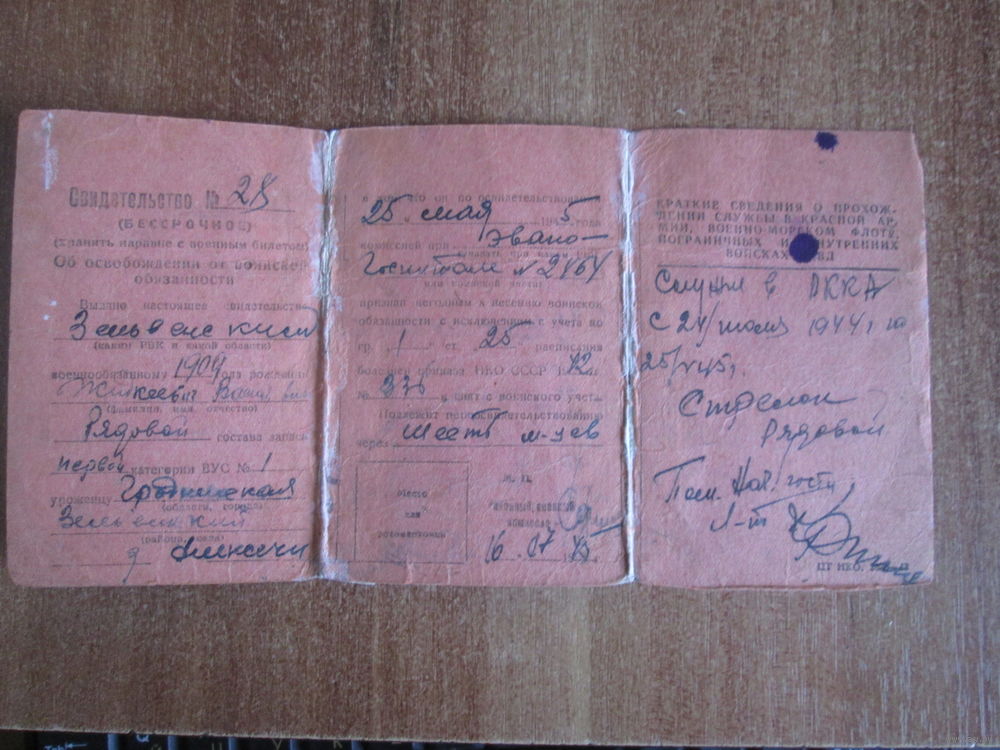 Свидетельство № 28
(БЕССРОЧНОЕ)
(хранить наравне с военным билетом)
Об освобождении от воинской
обязанности
Выдано настоящее свидетельство
Зельвенский
(каким РВК и какой области)
военнообязанному 1909 года рождения
(фамилия, имя, отчество)
Рядовой состава запаса
первой категории ВУС № 1
уроженцу Гродненская
(области, города)
Зельвенский
(района, села)
д Алексичи
в том, что он по освидетельствовании
25 мая 1945 года
комиссией при Эвако-
Госпитале №
или воинской части)
признан негодным к несению воинской
обязанности с исключением с учета по
гр. 1 ст. 25 расписания
болезней приказа НКО СССР 1942 г.
№ 336 и снят с воинского учета.
Подлежит переосвидетельствованию
через Шесть м-цев
Место
для
фотокарточки
М. П.
военный
комиссар
16 07 45
КРАТКИЕ СВЕДЕНИЯ О ПРОХОЖ-
ДЕНИИ СЛУЖБЫ В КРАСНОЙ АР-
МИИ, ВОЕННО-МОРСКОМ ФЛОТЕ,
ПОГРАНИЧНЫХ И ВНУТРЕННИХ
ВОЙСКАХ НКВД
Служил в РККА
с 24/июля 1944 г по
25/V 45 г.
Стрелок
Рядовой
Пом. Нач. госпит.
Л-т